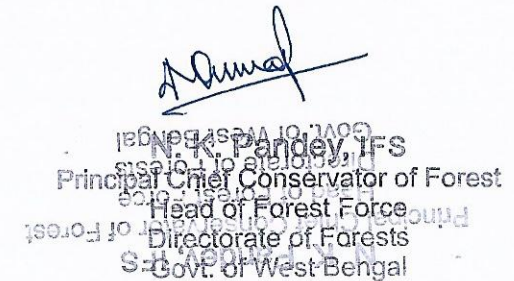 N. K. Pandey, IFS
Principal Chief Conservator of Forest
Head of Forest Force
Directorate of Forests
Govt. of West Bengal